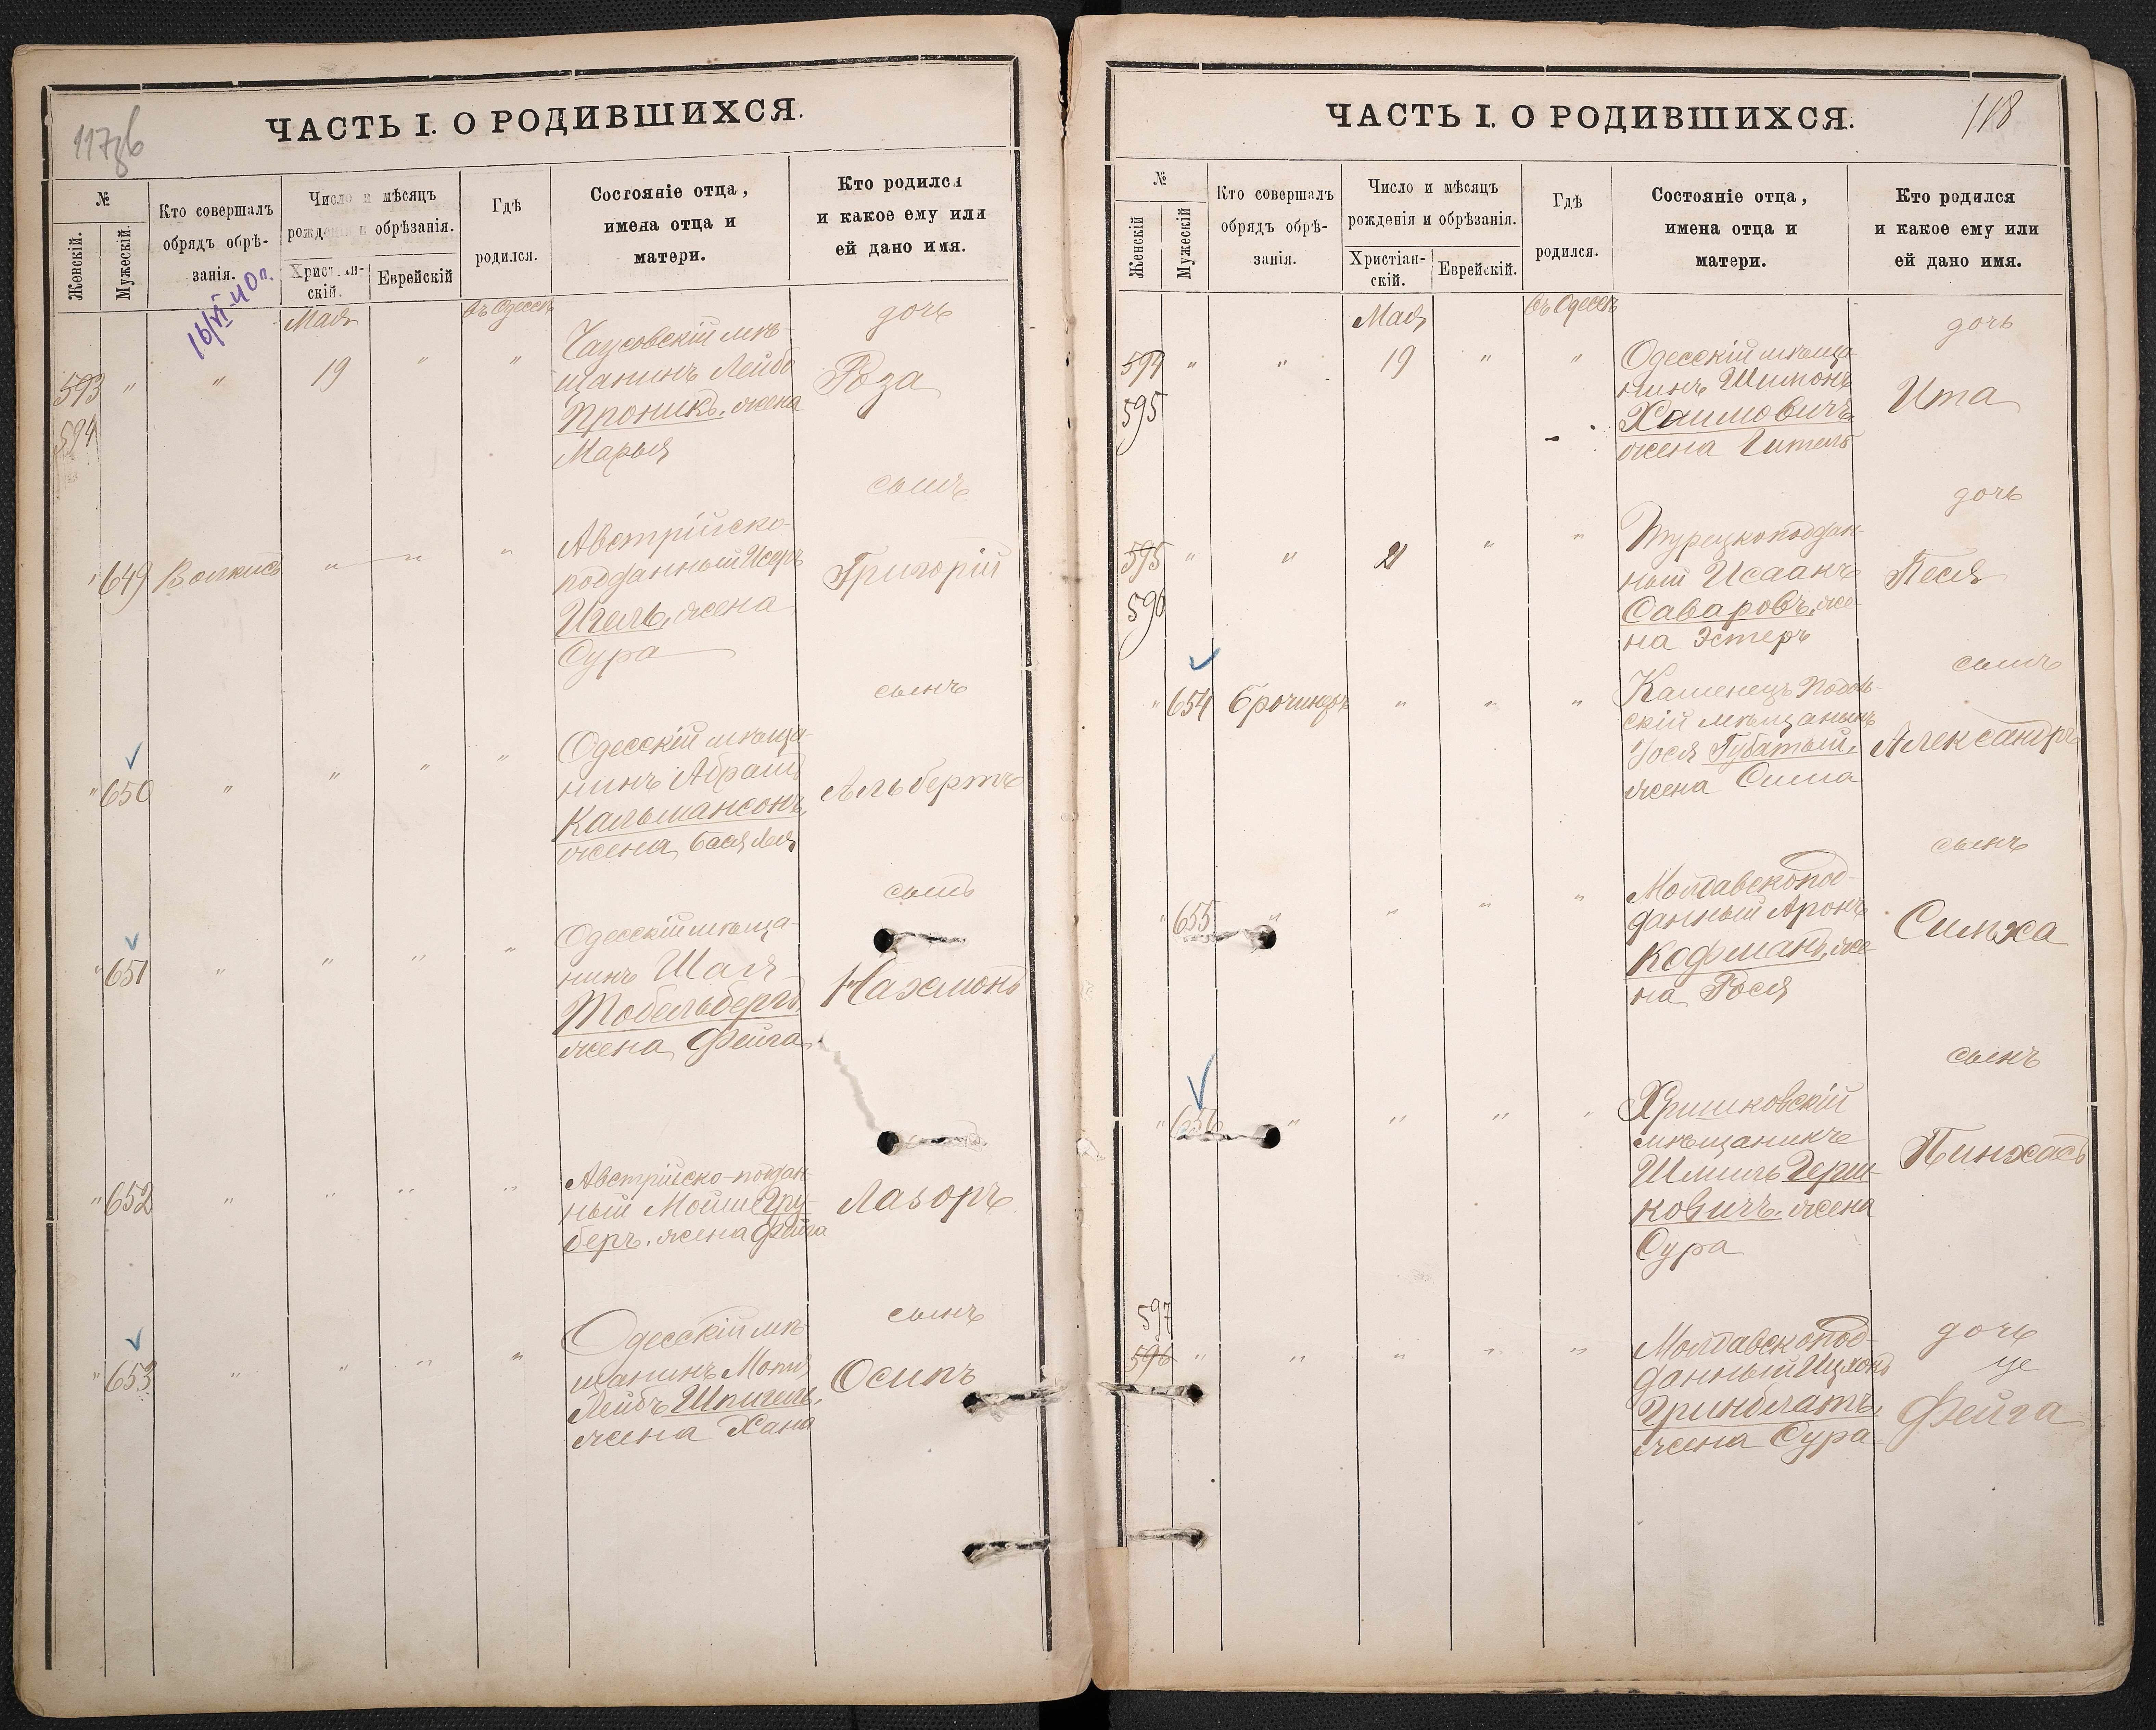 117об
ЧАСТЬ I. О РОДИВШИХСЯ.
№
Женскій.
Мужескій.
Кто совершалъ
обрядъ обрѣ-
занія.
Число и мѣсяцъ
рожденія и обрѣзанія.
Христіан-
скій.
Еврейскій
Гдѣ
родился.
Состояніе отца,
имена отца и
матери.
Кто родился
и какое ему или
ей дано имя.
16/VI-40г.
Мая
въ Одессѣ
дочь
593 " " 19 " "
594
Чаусовскій мѣ-
щанинъ Лейбъ
Проникъ, жена
Марья
Роза
сынъ
" 649 " " "
Австрійско-
подданный
Игель, жена
Сура
Григорій
сынъ
" 650 " " " "
Одесскій мѣща-
нинъ Абрамъ
Кальмансонъ,
жена Бася Лея
Альбертъ
сынъ
" 651 " " " "
Одесскій мѣща-
нинъ Шая
Тобельбергъ,
жена Фейга
Нахмонъ
" 652 " " " "
Австрійско-поддан-
ный Мойше Гру-
беръ, жена Фейга
Лазоръ
сынъ
" 653 " " " "
Одесскій мѣ-
щанинъ Мотя
Лейбъ Шпигель,
жена Хана
Осипъ
118
ЧАСТЬ I. О РОДИВШИХСЯ.
№
Женскій
Мужескій
Кто совершалъ
обрядъ обрѣ-
занія.
Число и мѣсяцъ
рожденія и обрѣзанія.
Христіан-
скій.
Еврейскій.
Гдѣ
родился.
Состояніе отца,
имена отца и
матери.
Кто родился
и какое ему или
ей дано имя.
Мая
въ Одессѣ
дочь
594 " " 19 " "
595
Одесскій мѣща-
нинъ Шимонъ
Хаимовичъ,
жена Гитель
Ита
дочь
595 " " 21 " "
596
Турецкоподдан-
ный Исаакъ
Саваровъ, же-
на Эстеръ
Песя
сынъ
" 654 " " "
Каменецъ Подоль-
скій мѣщанинъ
Іося Губатый,
жена Сима
Александръ
сынъ
" 655 " " " "
Молдавскопод-
данный Аронъ
Кофманъ, же-
на Рося
Симха
сынъ
" 656 " " " "
мѣщанинъ
Шмиль Герш-
ковичъ, жена
Сура
Пинхасъ
597
596 " " " " "
Молдавскопод-
данный Ицхокъ
Гринблатъ,
жена Сура
дочь
Фейга